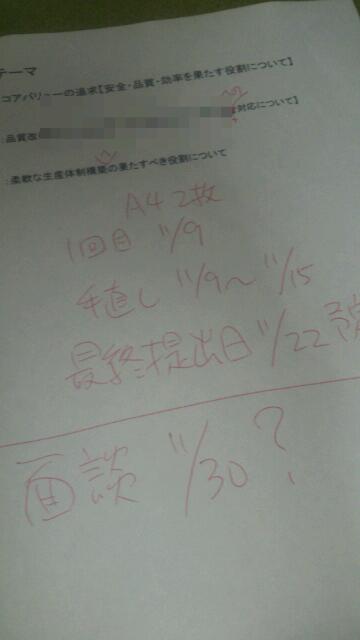 テーマ
コアバリューの追求【安全・品質・効率を果たす役割について】
:品質改 対応について】
:柔軟な生産体制構築の果たすべき役割について
A4 2枚
1回目 11/9
手直し 11/9〜11/15
最終提出日 11/22 予
面談 11/30?